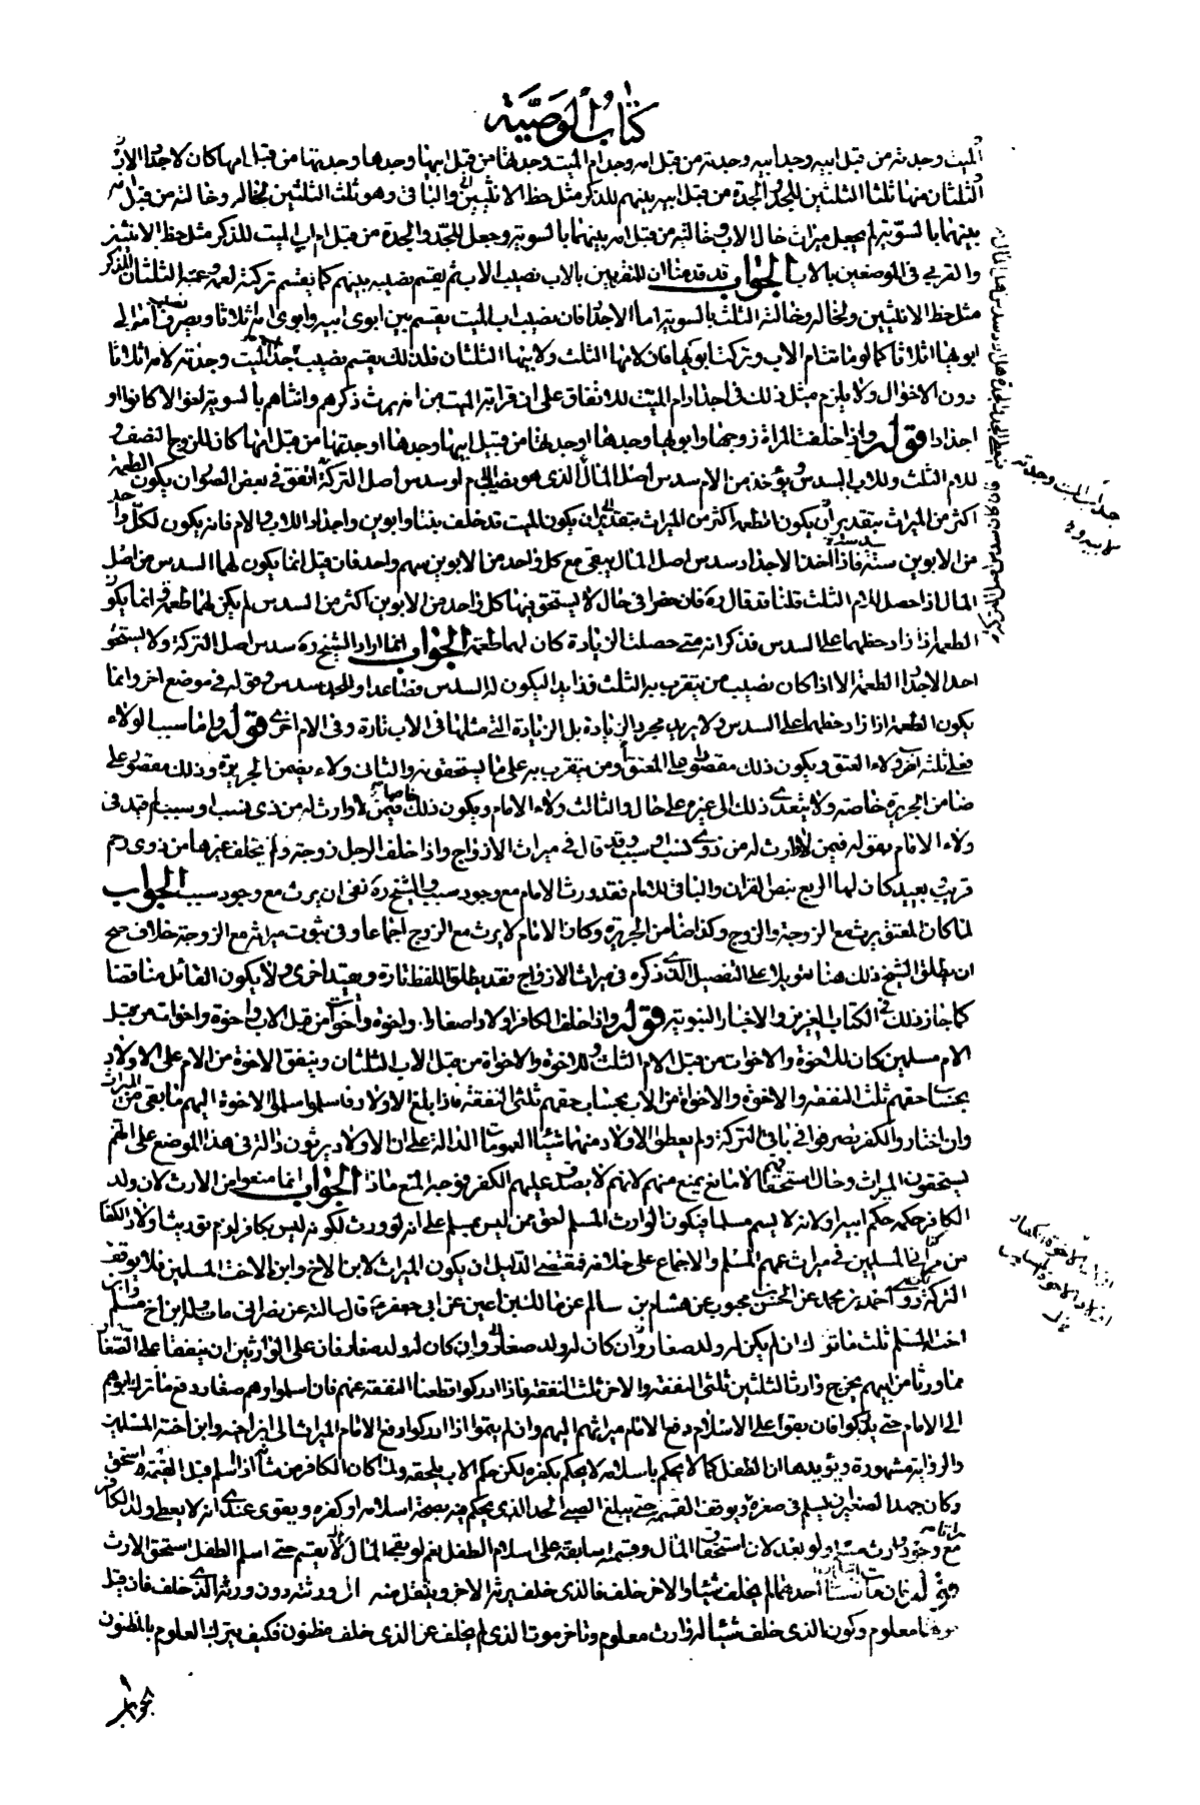 كتاب الوصية
الميت وجدته من قبل ابيه وجد ابيه وجدته من قبل امه وجد ام الميت وجدها من قبل ابيها وجدها وجدتها من قبل امها كان لاجداد الاب
الثلثان منها ثلثا الثلثين للجد والجدة من قبل ابيه بينهم للذكر مثل حظ الانثيين والباقى وهو ثلث الثلثين لخاله وخالته من قبل امه
بينهما بالسوية لم يجعل ميراث خال الاب وخالته من قبل امه بينهما بالسوية وجعل للجد والجدة من قبل ام اب الميت للذكر مثل حظ الانثيين
والقربى فى الموضعين بالاب الجواب قد قدمنا ان للمتقربين بالاب نصيب الاب ثم يقسم نصيبه بينهم كما يقسم تركته لعمه وعمته الثلثان للذكر
مثل حظ الانثيين ولخاله وخالته الثلث بالسوية اما الاجداد فان نصيب اب الميت يقسم بين ابوى ابيه وابوى امه اثلاثا ويصرف نصيب امه الى
ابويها اثلاثا كما لو مات ام الاب وتركت ابويها فان لامها الثلث ولابيها الثلثان فلذلك يقسم نصيب جد الميت وجدته لامه اثلاثا
دون الاخوال ولا يلزم مثل ذلك فى اجداد ام الميت للاتفاق على ان قرابة الميت من امه يرث ذكرهم وانثاهم بالسوية اخوالا كانوا او
اجدادا قوله واذا خلفت المراة زوجها وابويها وجدها وجدتها من قبل ابيها وجدها وجدتها من قبل امها كان للزوج النصف و
للام الثلث وللاب السدس ويؤخذ من الام سدس اصل المال الذى هو نصيب الام او سدس اصل التركة اتفق فى بعض الصور ان يكون الطعمة
اكثر من الميراث بتقدير ان يكون الطعمة اكثر من الميراث بتقدير ان يكون الميت قد خلف بنتا وابوين واجداد اللاب والام فانه يكون لكل واحد
من الابوين سدسه فاذا اخذ الاجداد سدس اصل المال يبقى مع كل واحد من الابوين سهم واحد فان قيل انما يكون لهما السدس من اصل
المال اذا حصل للام الثلث قلنا قد قال ره فان حضرا فى حال لا يستحق فيها كل واحد من الابوين اكثر من السدس لم يكن لهما طعمة وانما يكون
الطعمة اذا زاد حظهما على السدس فذكر انه متى حصلت الزيادة كان لهما طعمة الجواب انما اراد الشيخ ره سدس اصل التركة ولا يستحق
احد الاجداد الطعمة الا اذا كان نصيب من يتقرب به الثلث فزايدا ليكون له السدس فصاعدا وللجد سدس وقوله فى موضع اخر وانما
يكون الطعمة اذا زاد حظهما على السدس ولا يريد مجرد الزيادة بل الزيادة التى مثلها فى الاب تارة وفى الام اخرى قوله واما سبب الولاء
فعلى ثلثة اضرب ولاء العتق ويكون ذلك مقصورا على المعتق او من يتقرب به على ما يستحقونه والثانى ولاء تضمن الجريرة وذلك مقصور على
ضامن الجريرة خاصة ولا يتعدى ذلك الى غيره على حال والثالث ولاء الامام ويكون ذلك فيمن لا وارث له من ذى نسب او سبب لم قيد فى
ولاء الامام بقوله فيمن لا وارث له من ذوى نسب او سبب وقد قال فى ميراث الازواج واذا خلف الرجل زوجة ولم يخلف غيرها من ذوى رحم
قريب او بعيد كان لها الربع بنص القران والباقى للامام فقد ورث الامام مع وجود سبب والشيخ ره نفى ان يرث مع وجود سبب الجواب
لما كان المعتق يرث مع الزوجة والزوج وكذا ضامن الجريرة وكان الامام لا يرث مع الزوج اجماعا وفى ثبوت ميراثه مع الزوجة خلاف صح
ان يطلق الشيخ ذلك هنا تعويلا على التفصيل الذى ذكره فى ميراث الازواج فقد يطلق اللفظ تارة ويقيد اخرى ولا يكون القائل مناقضا
كما جاز ذلك فى الكتاب العزيز والاخبار النبوية قوله واذا خلف الكافر اولادا صغارا واخوة واخوات من قبل الاب واخوة واخوات من قبل
الام مسلمين كان للاخوة والاخوات من قبل الام الثلث وللاخوة والاخوات من قبل الاب الثلثان وينفق الاخوة من الام على الاولاد
بحساب حقهم ثلث النفقة والاخوة والاخوات من الاب بحساب حقهم ثلثى النفقة فاذا بلغ الاولاد فاسلموا سلموا الاخوة اليهم ما بقى من الميراث
وان اختاروا الكفر تصرفوا فى باقى التركة ولم يعطوا الاولاد منها شيئا العمومات الدالة على ان الاولاد يرثون دالة فى هذا الموضع على انهم
يستحقون الميراث وحال استحقاقهم لا مانع يمنع منهم لانهم لا يصدق عليهم الكفر فوجه المنع ماذا الجواب انما منعوا من الارث لان ولد
الكافر حكمه حكم ابيه او لانه لا يسمى مسلما فيكون الوارث المسلم احق ممن ليس بمسلم على انه لو ورث لكونه ليس بكافر لزم توريث اولاد الكفار
من المسلمين فى ميراث عمهم المسلم والاجماع على خلافه فمقتضى الدليل ان يكون الميراث لابن الاخ وابن الاخت المسلمين فلا يوقف
التركة روى احمد بن محمد عن الحسن بن محبوب عن هشام بن سالم عن مالك بن اعين عن ابى جعفر قال سالته عن نصرانى مات وله ابن اخ مسلم وابن
اخت مسلم ثلث ما ترك ان لم يكن له ولد صغار وان كان له ولد صغار فان على الوارثين ان ينفقا على الصغار
مما ورثا من ابيهم يخرج وارث الثلثين ثلثى النفقة والاخر ثلث النفقة فاذا ادركوا قطعنا النفقة عنهم فان اسلموا وهم صغار دفع ما ترك ابوهم
الى الامام حتى يدركوا فان بقوا على الاسلام دفع الامام ميراثهم اليهم وان لم يبقوا اذا ادركوا دفع الامام الميراث الى ابن اخيه وابن اخته المسلمين
والرواية مشهورة ويؤيدها ان الطفل كما لا يحكم باسلامه لا يحكم بكفره لكن حكم الاب يلحقه ولما كان الكافر من شانه اذا اسلم قبل القسمة استحق
وكان جهد الصغير ان يسلم فى صغره ويوقف القسمة حتى يبلغ الصبى الحد الذى يحكم منه بصحة اسلامه او كفره ويقوى عندى انه لا يعطى ولد الكافر
مع وجود وارث مسلم ولو بعد لان استحقاق المال وقسمته سابقة على اسلام الطفل نعم لو بقى المال لم يقسم حتى اسلم الطفل استحق الارث
قوله فان احدهما لم يخلف شيئا والاخر خلف فالذى خلف يرثه الاخر وينتقل منه الى ورثته دون ورثة الذى خلف فان قيل
معلوم وكون الذى خلف شيئا له وارث معلوم وتاخر موت الذى لم يخلف عن الذى خلف مظنون فكيف يترك المعلوم بالمظنون